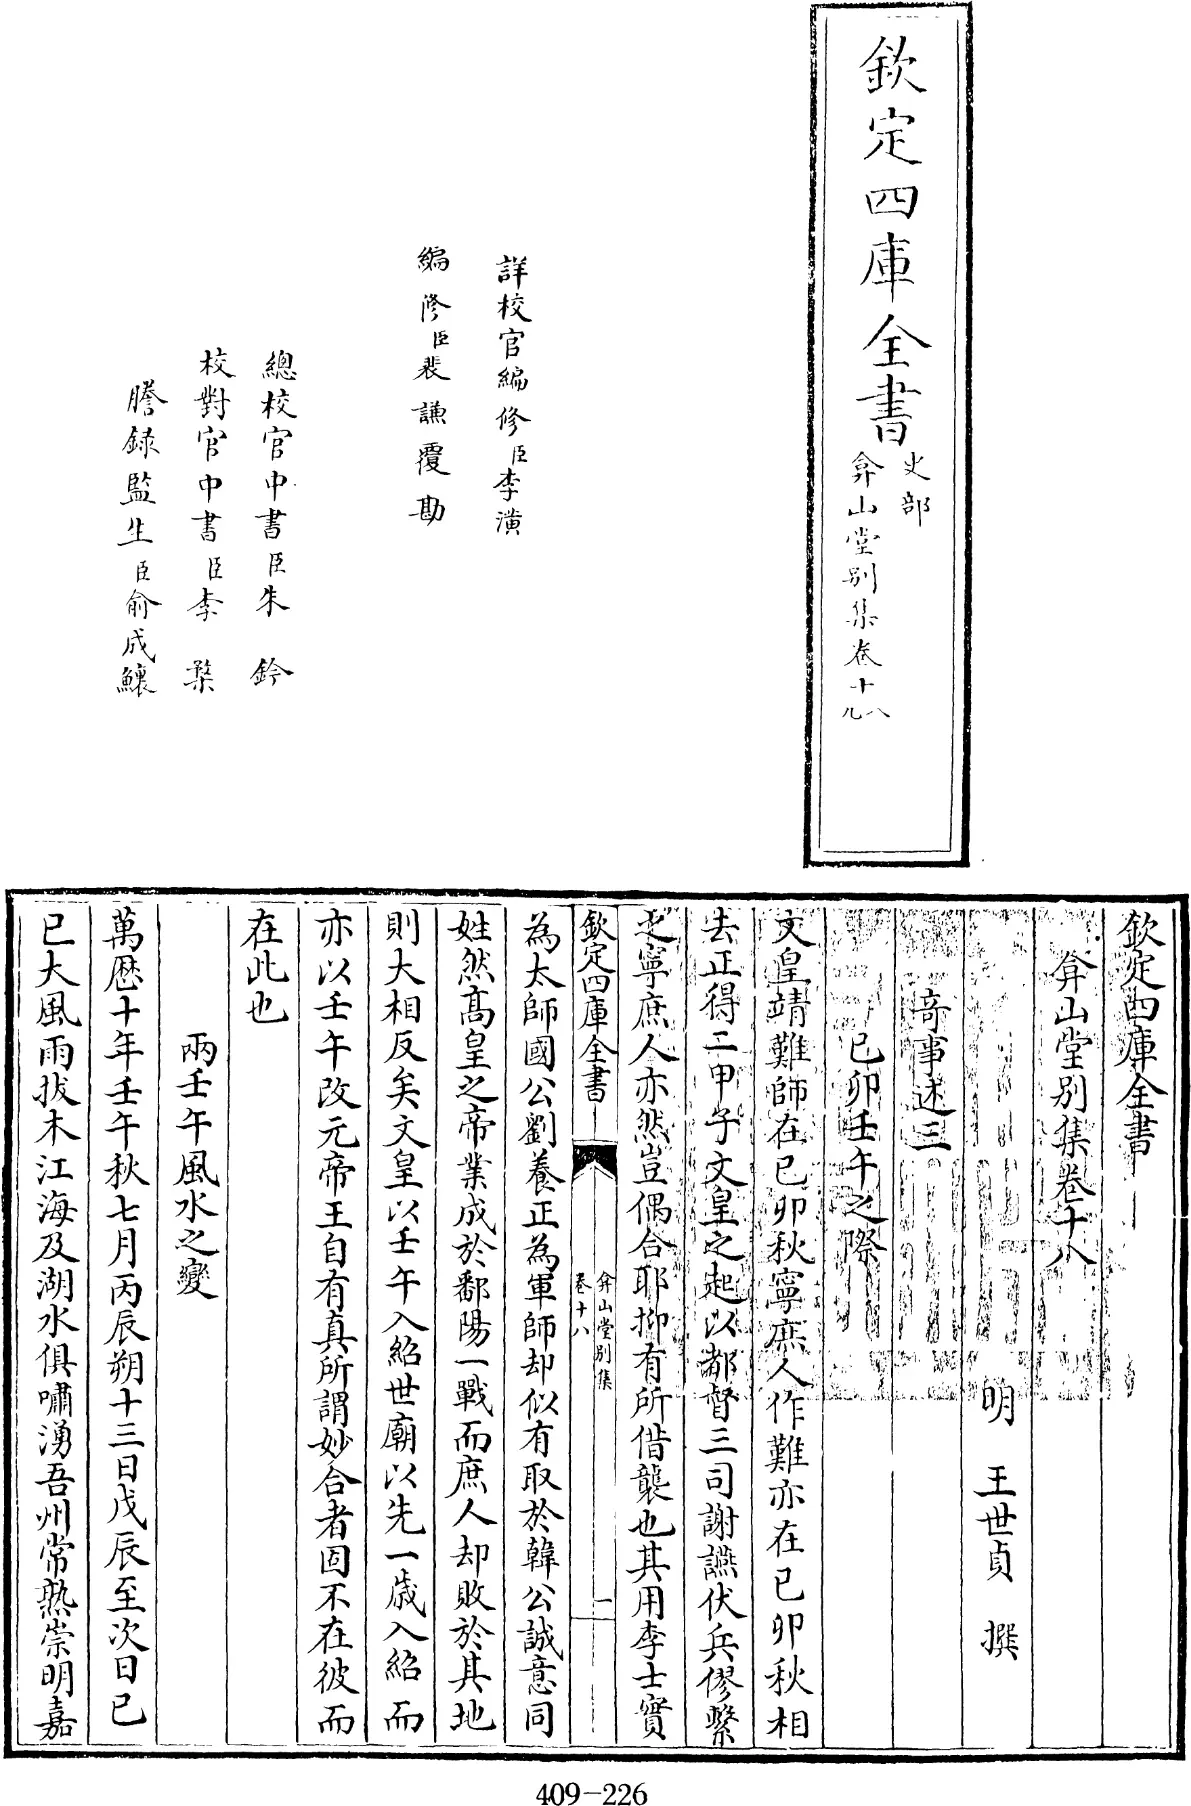 欽定四庫全書
史部
弇山堂別集卷十八
九
詳校官編修臣李潢
編修臣裴謙覆勘
總校官中書臣朱鈐
校對官中書臣李楘
謄録監生臣俞成鑲
欽定四庫全書
弇山堂别集卷十八
明 王世貞 撰
奇事述三
己卯壬午之際
文皇靖難師在己卯秋寧庶人作難亦在己卯秋相
去正得二甲子文皇之起以都督三司謝讌伏兵僇繫
之寧庶人亦然豈偶合耶抑有所借襲也其用李士實
欽定四庫全書
弇山堂别集
卷十八
一
為太師國公劉養正為軍師却似有取於韓公誠意同
姓然髙皇之帝業成於鄱陽一戰而庶人却敗於其地
則大相反矣文皇以壬午入紹世廟以先一歲入紹而
亦以壬午改元帝王自有真所謂妙合者固不在彼而
在此也
兩壬午風水之變
萬厯十年壬午秋七月丙辰朔十三日戊辰至次日已
已大風雨拔木江海及湖水俱嘯湧吾州常熟崇明嘉
409-226